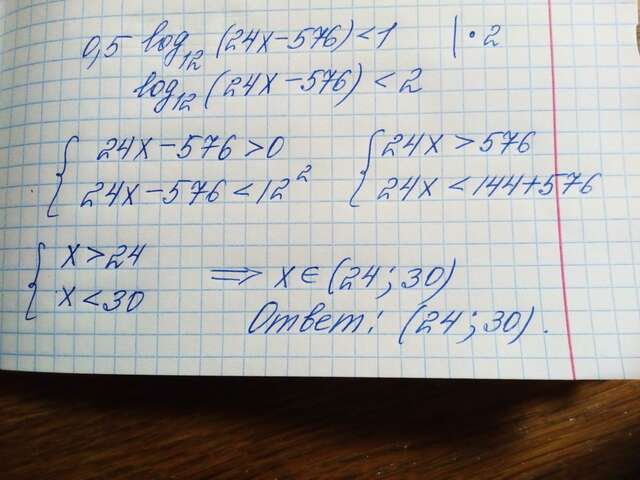 0,5 log₁₂ (24x-576) < 1 | • 2
log₁₂ (24x-576) < 2
{ 24x-576 > 0 { 24x > 576
{ 24x-576 < 12² { 24x < 144+576
{ x > 24
{ x < 30 ⟹ x ∈ (24; 30)
Ответ: (24; 30).